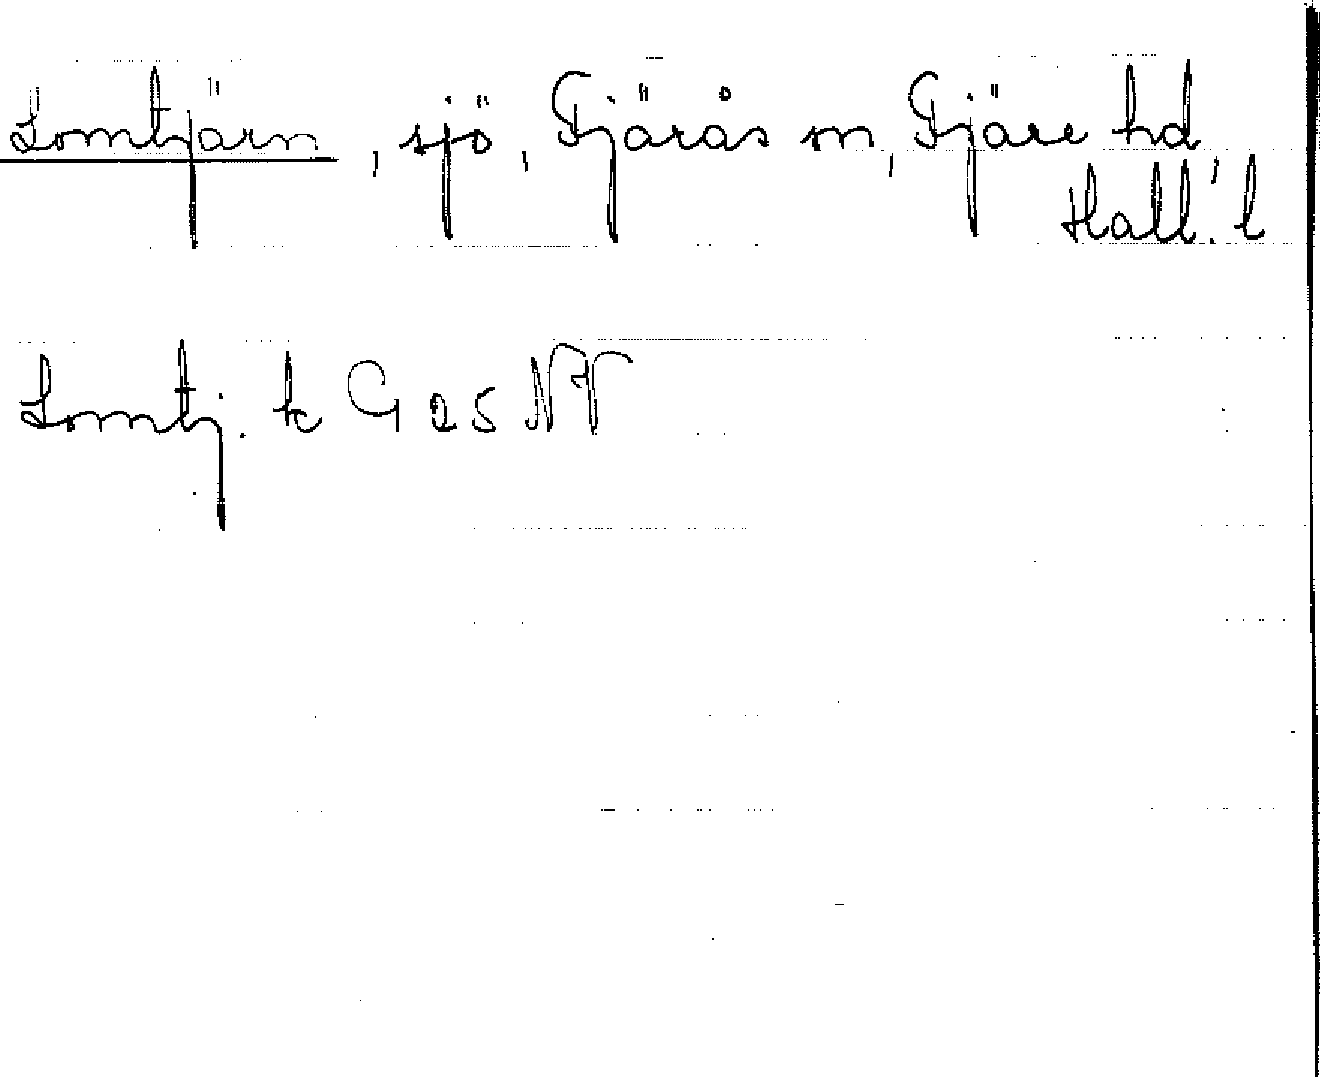 Lomtjärn, sjö, Fjärås sn, Fjäre hd,
Hall. l
Lomtj. k G 25 NV